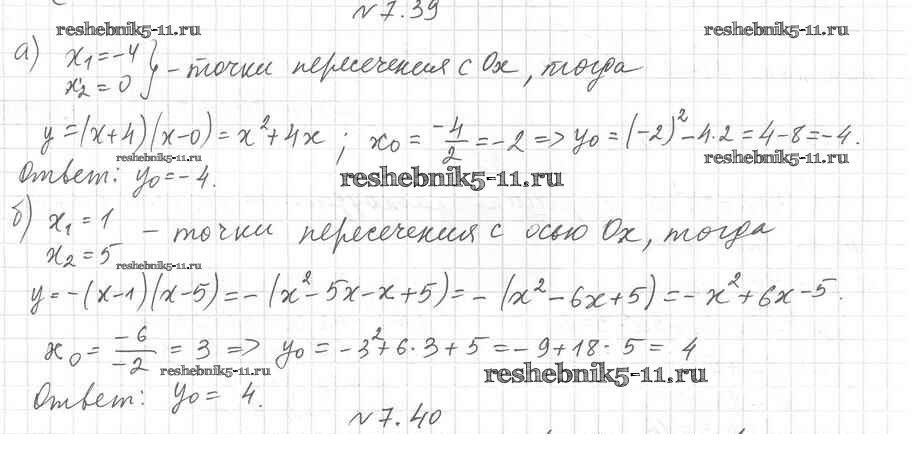 №7.39
reshebnik5-11.ru reshebnik5-11.ru
а) x₁=-4
x₂=0 } - точки пересечения с Ox, тогда
y=(x+4)(x-0)=x²+4x; x₀=-4/2=-2=>y₀=(-2)²-4·2=4-8=-4.
reshebnik5-11.ru reshebnik5-11.ru
Ответ: y₀=-4. reshebnik5-11.ru
б) x₁=1
x₂=5 - точки пересечения с осью Ox, тогда
reshebnik5-11.ru
y=-(x-1)(x-5)=-(x²-5x-x+5)=-(x²-6x+5)=-x²+6x-5.
x₀=-6/-2=3=>y₀=-3²+6·3+5=-9+18-5=4
reshebnik5-11.ru reshebnik5-11.ru
Ответ: y₀=4.
№7.40